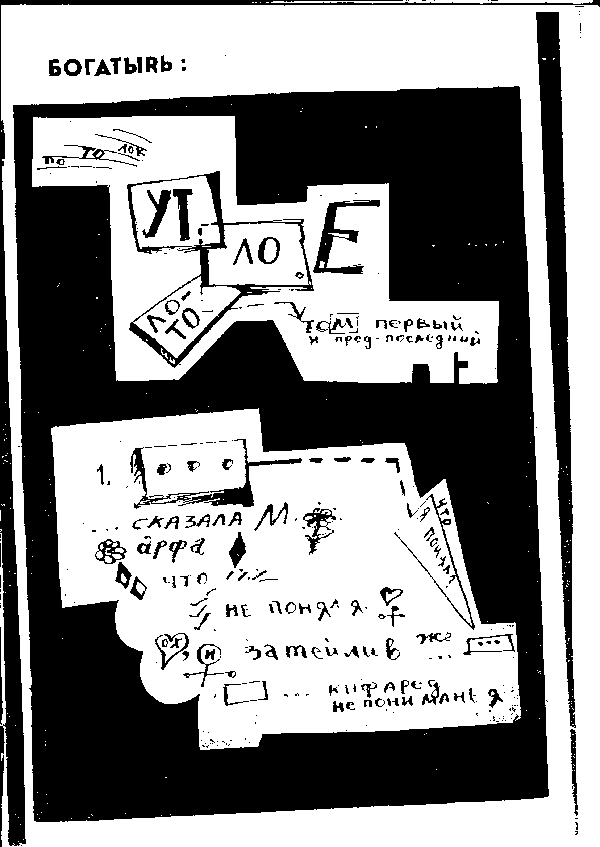 БОГАТЫЯЬ :
ПО ТО ЛОК
УТ
ЛО
Е
ЛО-
ТО
ТОМ ПЕРВЫЙ
И ПРЕД-ПОСЛЕДНИЙ
1.
... СКАЗАЛА М
арфа
ЧТО
НЕ ПОНЯЛ Я
ЧТО
Я ПОНЯЛ?
ОХ, И ЗАТЕЙЛИВ ЖЕ ...
... КИФАРЕД
НЕПОНИМАНЬЯ